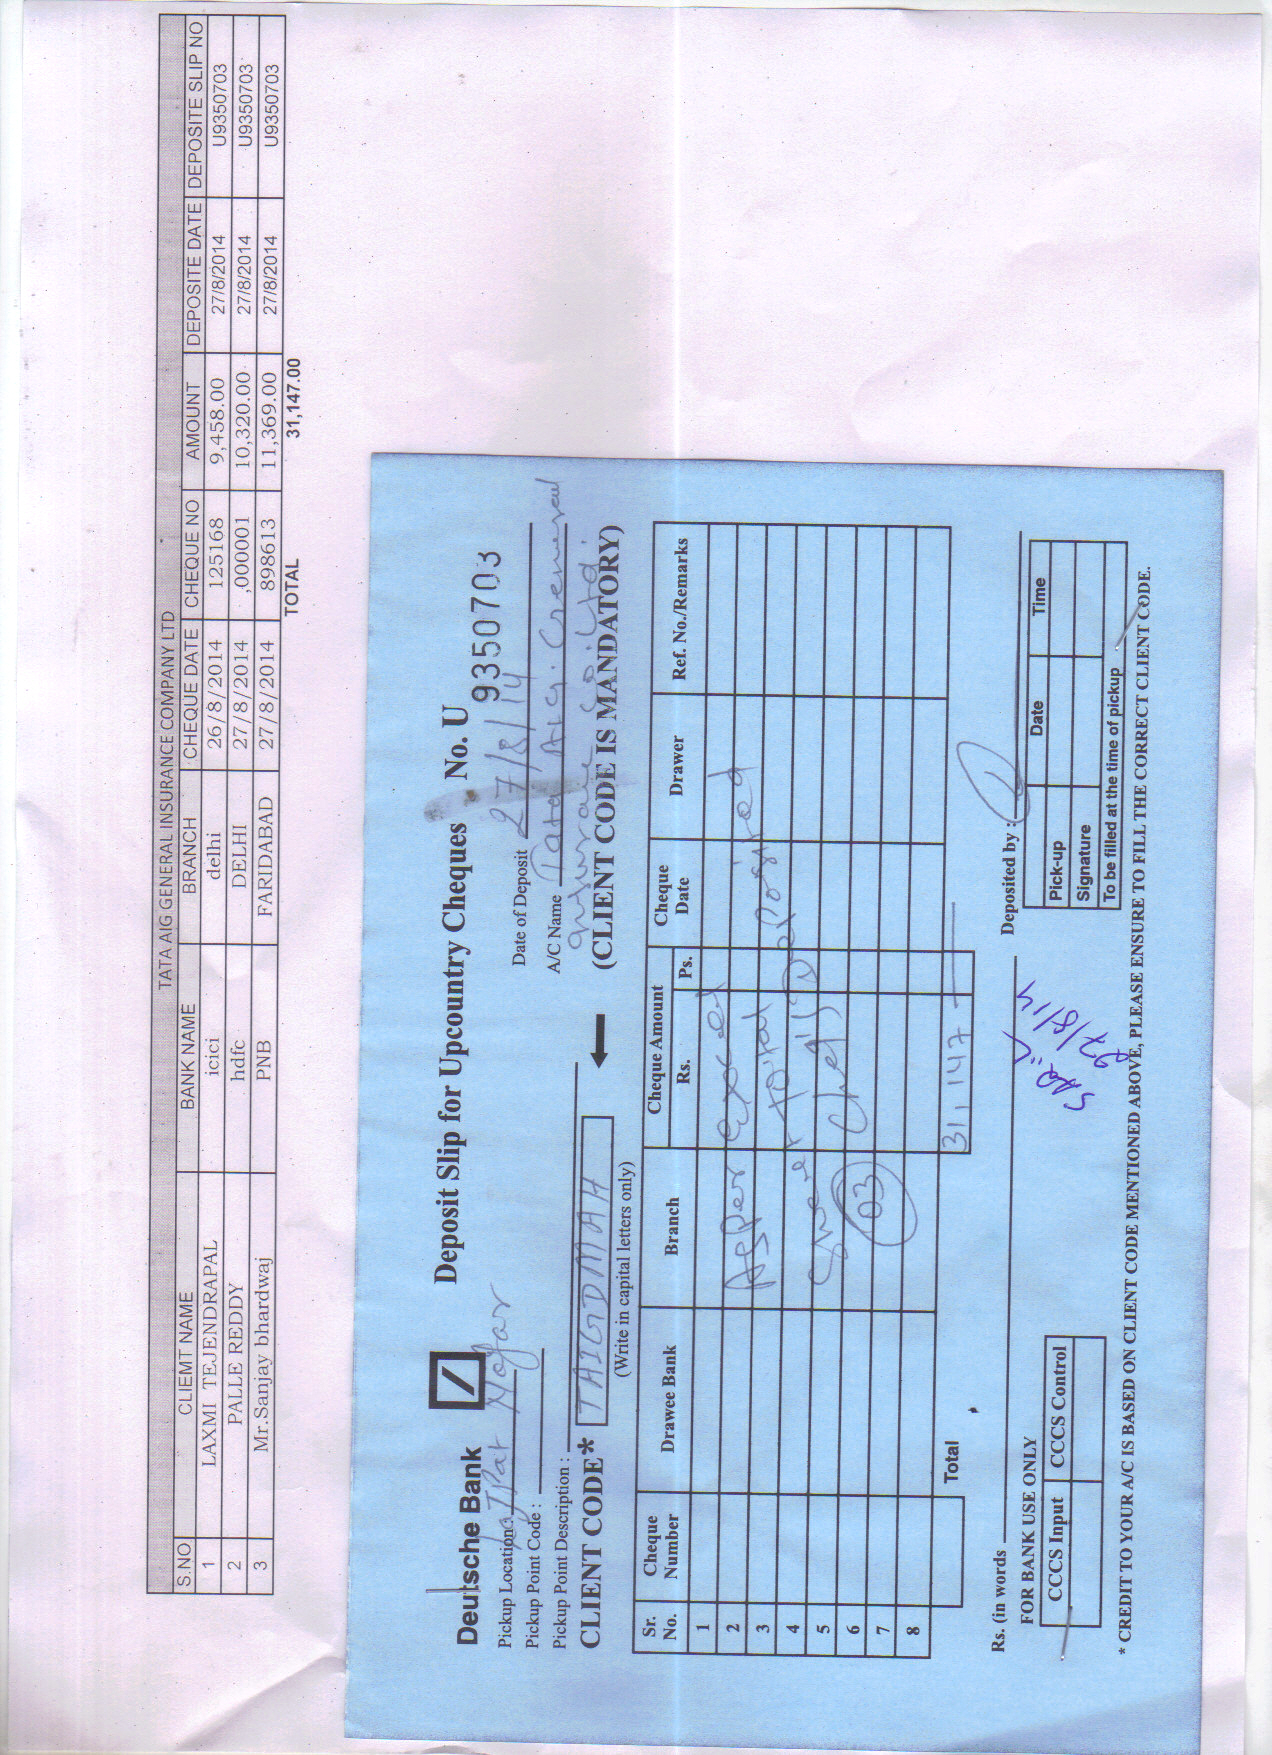 TATA AIG GENERAL INSURANCE COMPANY LTD
S.NO CLIEMT NAME BANK NAME BRANCH CHEQUE DATE CHEQUE NO AMOUNT DEPOSITE DATE DEPOSITE SLIP NO
1 LAXMI TEJENDRAPAL icici delhi 26/8/2014 125168 9,458.00 27/8/2014 U9350703
2 PALLE REDDY hdfc DELHI 27/8/2014 ,000001 10,320.00 27/8/2014 U9350703
3 Mr.Sanjay bhardwaj PNB FARIDABAD 27/8/2014 898613 11,369.00 27/8/2014 U9350703
TOTAL 31,147.00
Deutsche Bank Deposit Slip for Upcountry Cheques No. U 9350703
Pickup Location : Lajpat Nagar Date of Deposit 27/8/14
Pickup Point Code : A/C Name Tata AIG General
Pickup Point Description : Insurance Co. Ltd.
CLIENT CODE* TAIGDMAH (CLIENT CODE IS MANDATORY)
(Write in capital letters only)
Sr. No. Cheque Number Drawee Bank Branch Cheque Amount Rs. Ps. Cheque Date Drawer Ref. No./Remarks
1
2 As per
3 total
4
5
6 03
7
8
Total 31,147
Rs. (in words Deposited by :
FOR BANK USE ONLY
CCCS Input CCCS Control
27/8/14
Date Time
Pick-up
Signature
To be filled at the time of pickup
* CREDIT TO YOUR A/C IS BASED ON CLIENT CODE MENTIONED ABOVE, PLEASE ENSURE TO FILL THE CORRECT CLIENT CODE.